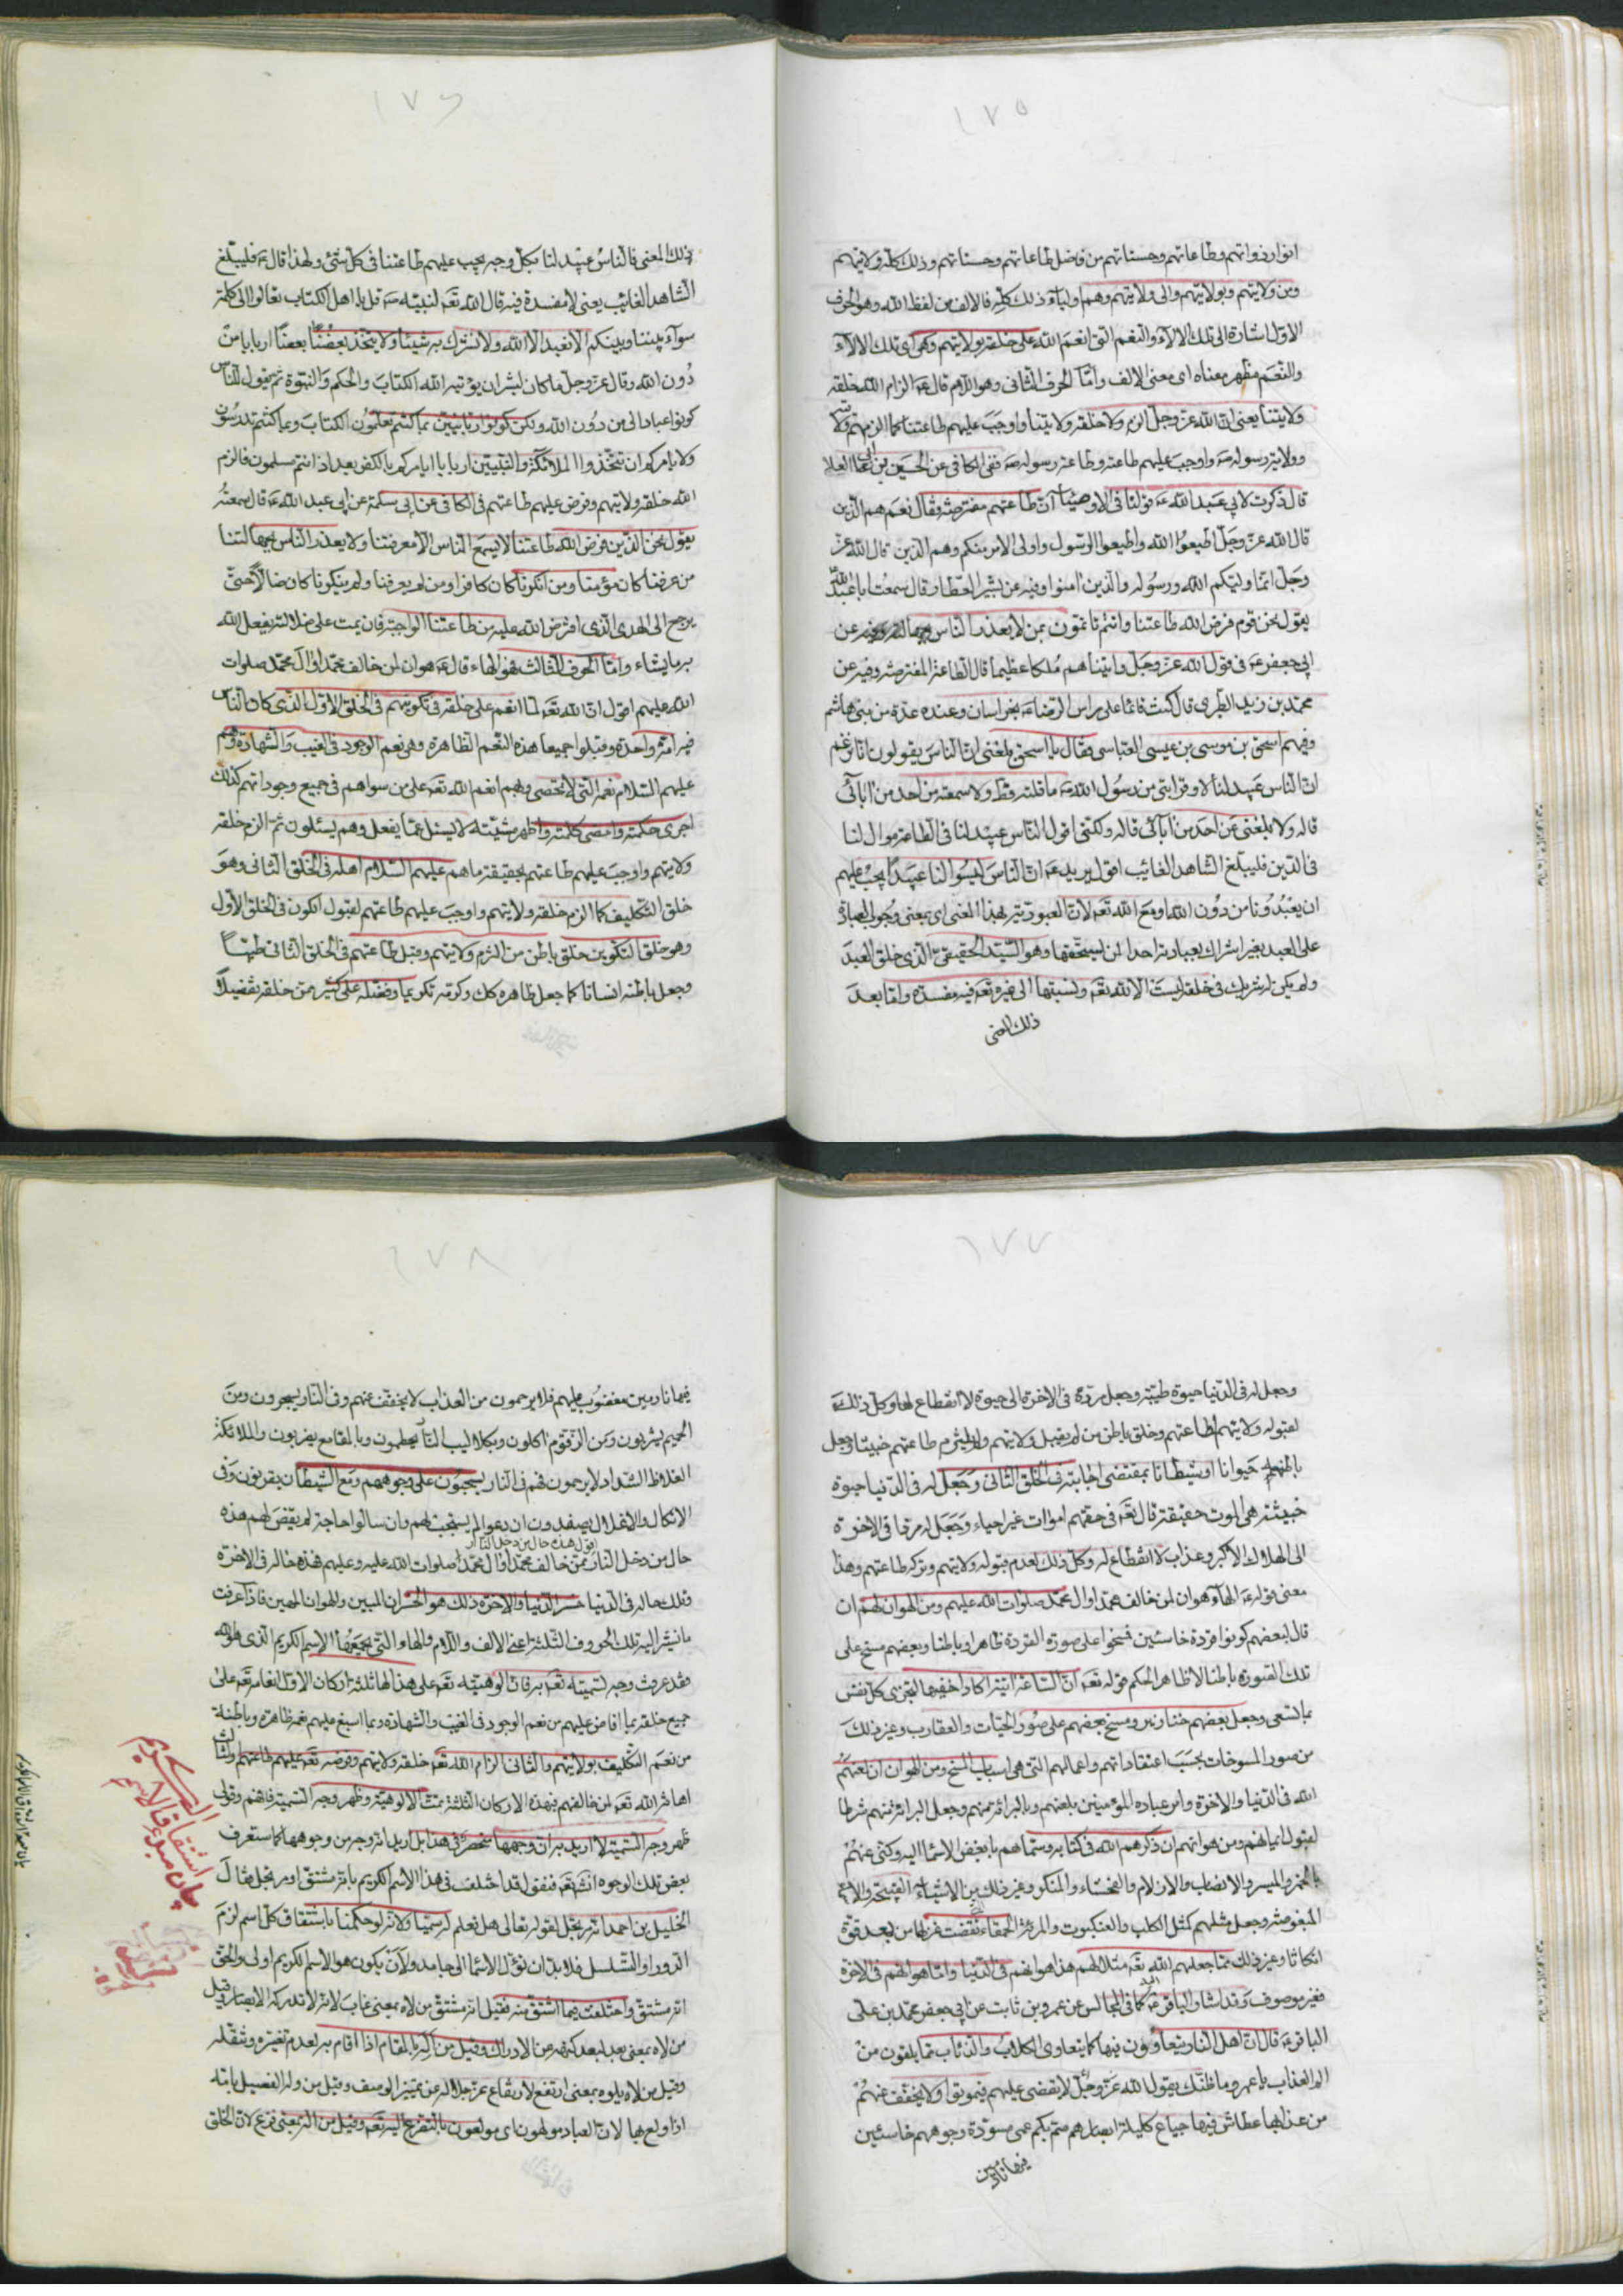 ١٧٥
انوار ذواتهم وطاعاتهم وحسناتهم من فاضل طاعاتهم وحسناتهم وذلك كله ولايتهم
ومن ولايتهم وبولايتهم والى ولايتهم وهم اولياء ذلك كله فالالف من لفظ الله وهو الحرف
الاول اشارة الى تلك الالاء والنعم التى انعم الله على خلقه بولايتهم وهى اى تلك الالاء
والنعم مظهر معناه اى معنى الالف واما الحرف الثانى وهو اللام قال ع الزام الله خلقه
ولايتنا يعنى ان الله عز وجل الزم خلقه ولايتنا واوجب عليهم طاعتنا كما الزمهم ولايته
وولاية رسوله ص واوجب عليهم طاعته وطاعة رسوله ص ففى الكافى عن الحسين بن ابى العلا
قال ذكرت لابى عبد الله ع قولنا فى الاوصياء ان طاعتهم مفترضة فقال نعم هم الذين
قال الله عز وجل اطيعوا الله واطيعوا الرسول واولى الامر منكم وهم الذين قال الله عز
وجل انما وليكم الله ورسوله والذين امنوا وفيه عن بشير العطار قال سمعت ابا عبد الله
يقول نحن قوم فرض الله طاعتنا وانتم تاتمون بمن لا يعذر الناس بجهالته وفيه عن
ابى جعفر ع فى قول الله عز وجل واتيناهم ملكا عظيما قال الطاعة المفترضة وفيه عن
محمد بن زيد الطبرى قال كنت قائما على راس الرضا ع بخراسان وعنده عدة من بنى هاشم
وفيهم اسحق بن موسى بن عيسى العباسى فقال يا اسحق بلغنى ان الناس يقولون انا نزعم
ان الناس عبيد لنا لا وقرابتى من رسول الله ص ما قلته قط ولا سمعته من احد من ابائى
قاله ولا بلغنى عن احد من ابائى قاله ولكنى اقول الناس عبيد لنا فى الطاعة موال لنا
فى الدين فليبلغ الشاهد الغائب اقول يريد ع ان الناس ليسوا لنا عبيدا يجب عليهم
ان يعبدونا من دون الله او مع الله تعه لان العبودية بهذا المعنى اى بمعنى وجوب العبادة
على العبد بغير اشراك بعبادته احدا لمن يستحقها وهو السيد الحقيقى الذى خلق العبد
ولم يكن له شريك فى خلقه ليست الا لله تعه ونسبتها الى غيره تعه فيه مفسدة واما بعد
ذلك المعنى
١٧٦
ذلك المعنى فالناس عبيد لنا بكل وجه يجب عليهم طاعتنا فى كل شئ ولهذا قال ع فليبلغ
الشاهد الغائب يعنى لا مفسدة فيه قال الله تعه لنبيه ص قل يا اهل الكتاب تعالوا الى كلمة
سواء بيننا وبينكم الا نعبد الا الله ولا نشرك به شيئا ولا يتخذ بعضنا بعضا اربابا من
دون الله وقال عز وجل ما كان لبشر ان يؤتيه الله الكتاب والحكم والنبوة ثم يقول للناس
كونوا عبادا لى من دون الله ولكن كونوا ربانيين بما كنتم تعلمون الكتاب وبما كنتم تدرسون
ولا يامركم ان تتخذوا الملائكة والنبيين اربابا ايامركم بالكفر بعد اذ انتم مسلمون فالزم
الله خلقه ولايتهم وفرض عليهم طاعتهم فى الكافى عن ابى سلمة عن ابى عبد الله ع قال سمعته
يقول نحن الذين فرض الله طاعتنا لا يسع الناس الا معرفتنا ولا يعذر الناس بجهالتنا
من عرفنا كان مؤمنا ومن انكرنا كان كافرا ومن لم يعرفنا ولم ينكرنا كان ضالا حتى
يرجع الى الهدى الذى افترض الله عليه من طاعتنا الواجبة فان يمت على ضلالته يفعل الله
به ما يشاء واما الحرف الثالث فهو الهاء قال ع هوان لمن خالف محمدا وال محمد صلوات
الله عليهم اقول ان الله تعه لما انعم على خلقه فى تكوينهم فى الخلق الاول الذى كان الناس
فيه امة واحدة وقبلوا جميعا هذه النعم الظاهرة وهى نعم الوجود فى الغيب والشهادة وهم
عليهم السلام نعمه التى لا تحصى وبهم انعم الله تعه على من سواهم فى جميع وجوداتهم كذلك
اجرى حكمته وامضى كلمته واظهر مشيته لا يسئل عما يفعل وهم يسئلون ثم الزم خلقه
ولايتهم واوجب عليهم طاعتهم بحقيقة ما هم عليهم السلام اهله فى الخلق الثانى وهو
خلق التكليف كما الزم خلقه ولايتهم واوجب عليهم طاعتهم لقبول الكون فى الخلق الاول
وهو خلق التكوين خلق باطن من التزم ولايتهم وقبل طاعتهم فى الخلق الثانى طيبا
وجعل باطنه انسانا كما جعل ظاهره كك وكرمه تكريما وفضله على كثير ممن خلقه تفضيلا
١٧٧
وجعل له فى الدنيا حيوة طيبة وجعل مرده فى الاخرة الى حيوة لا انقطاع لها وكل ذلك
لقبوله ولايتهم وطاعتهم وخلق باطن من لم يقبل ولايتهم ولم يلتزم طاعتهم خبيثا وجعل
باطنهم حيوانا او شيطانا بمقتضى اجابته فى الخلق الثانى وجعل له فى الدنيا حيوة
خبيثة هى الموت حقيقة قال تعه فى حقهم اموات غير احياء وجعل له مردا فى الاخرة
الى الهلاك الاكبر وعذاب لا انقطاع له وكل ذلك لعدم قبوله ولايتهم وتركه طاعتهم وهذا
معنى قوله ع الهاء هوان لمن خالف محمدا وال محمد صلوات الله عليهم ومن الهوان لهم ان
قال لبعضهم كونوا قردة خاسئين فمسخوا على صورة القردة ظاهرا وباطنا وبعضهم مسخ على
تلك الصورة باطنا لا ظاهرا لحكم قوله تعه ان الساعة اتية اكاد اخفيها لتجزى كل نفس
بما تسعى وجعل بعضهم خنازير ومسخ بعضهم على صور الحيات والعقارب وغير ذلك
من صور المسوخات بحسب اعتقاداتهم واعمالهم التى هى اسباب المسخ ومن الهوان ان لعنهم
الله فى الدنيا والاخرة وامر عباده المؤمنين بلعنهم وبالبرائة منهم وجعل البرائة منهم شرطا
لقبول ايمانهم ومن هوانهم ان ذكرهم الله فى كتابه وسماهم بابغض الاسماء اليه وكنى عنهم
بالخمر والميسر والانصاب والازلام والفحشاء والمنكر وغير ذلك من الاشياء القبيحة
المبغوضة وجعل مثلهم كمثل الكلب والعنكبوت والمرئة الحمقاء نقضت غزلها من بعد قوة
انكاثا وغير ذلك مما جعلهم الله تعه مثلا لهم هذا هوانهم فى الدنيا واما هوانهم فى الاخرة
فغير موصوف وقد اشار الباقر ع كما فى المجالس عن عمرو بن ثابت عن ابى جعفر محمد بن على
الباقر ع قال ان اهل النار يتعاوون فيها كما يتعاوى الكلاب والذئاب مما يلقون من
الم العذاب يا عمرو ما ظنك بقول الله عز وجل لا يقضى عليهم فيموتوا ولا يخفف عنهم
من عذابها عطاش فيها جياع كليلة ابصارهم صم بكم عمى مسودة وجوههم خاسئين
فيها نادمين
١٧٨
فيها نادمين مغضوب عليهم فلا يرحمون من العذاب لا يخفف عنهم وفى النار يسجرون ومن
الحميم يشربون ومن الزقوم ياكلون وبكلاليب النار يحطمون وبالمقامع يضربون والملائكة
الغلاظ الشداد لا يرحمون فهم فى النار يسحبون على وجوههم ومع الشيطان يقرنون وفى
الانكال والاغلال يصفدون ان دعوا لم يستجب لهم وان سالوا حاجة لم يقض لهم هذه
اقول هذه حال من دخل النار
حال من دخل النار ممن خالف محمدا وال محمد صلوات الله عليه وعليهم فهذه حاله فى الاخرة
وتلك حاله فى الدنيا خسر الدنيا والاخرة ذلك هو الخسران المبين والهوان المهين فاذا عرفت
ما نشير اليه تلك الحروف الثلثة اعنى الالف واللام والهاء والتى يجمعها الاسم الكريم الذى هو الله
فقد عرفت وجه تسميته تعه به فان الوهيته تعه على هذا لها ثلثة اركان الاول انعامه تعه على
جميع خلقه بما افاض عليهم من نعم الوجود فى الغيب والشهادة وبما اسبغ عليهم نعمه ظاهرة وباطنة
من نعم التكليف بولايتهم والثانى الزام الله تعه خلقه ولايتهم وفرضه تعه عليهم طاعتهم والثالث
اهانة الله تعه لمن خالفهم فبهذه الاركان الثلثة تمت الالوهية وظهر وجه التسمية فافهم وقولى
ظهر وجه التسمية لا اريد به ان وجهها منحصر فى هذا بل اريد انه وجه من وجوهها كما ستعرف
بعض تلك الوجوه انشاء تعه فنقول قد اختلف فى هذا الاسم الكريم بانه مشتق او مرتجل فقال
الخليل بن احمد انه مرتجل لقوله تعالى هل تعلم له سميا ولانه لو حكمنا باشتقاق كل اسم لزم
الدور او التسلسل فلا بد ان تؤل الاسماء الى جامد ولان يكون هو الاسم الكريم اولى والحق
انه مشتق واختلف فيما اشتق منه فقيل انه مشتق من لاه بمعنى غاب لانه لا تدركه الابصار وقيل
من لاه بمعنى بعد لبعد كنهه عن الادراك وقيل من اله بالمقام اذا اقام به لعدم تغيره وتنقله
وقيل من لاه يلوه بمعنى ارتفع لارتفاع عز جلاله عن تمييز الوصف وقيل من وله الفصيل بامه
اذا ولع بها لان العباد مولهون اى مولعون بالتضرع اليه تعه وقيل من اله بمعنى فزع لان الخلق
بيان مبدء اشتقاق الاسم الكريم